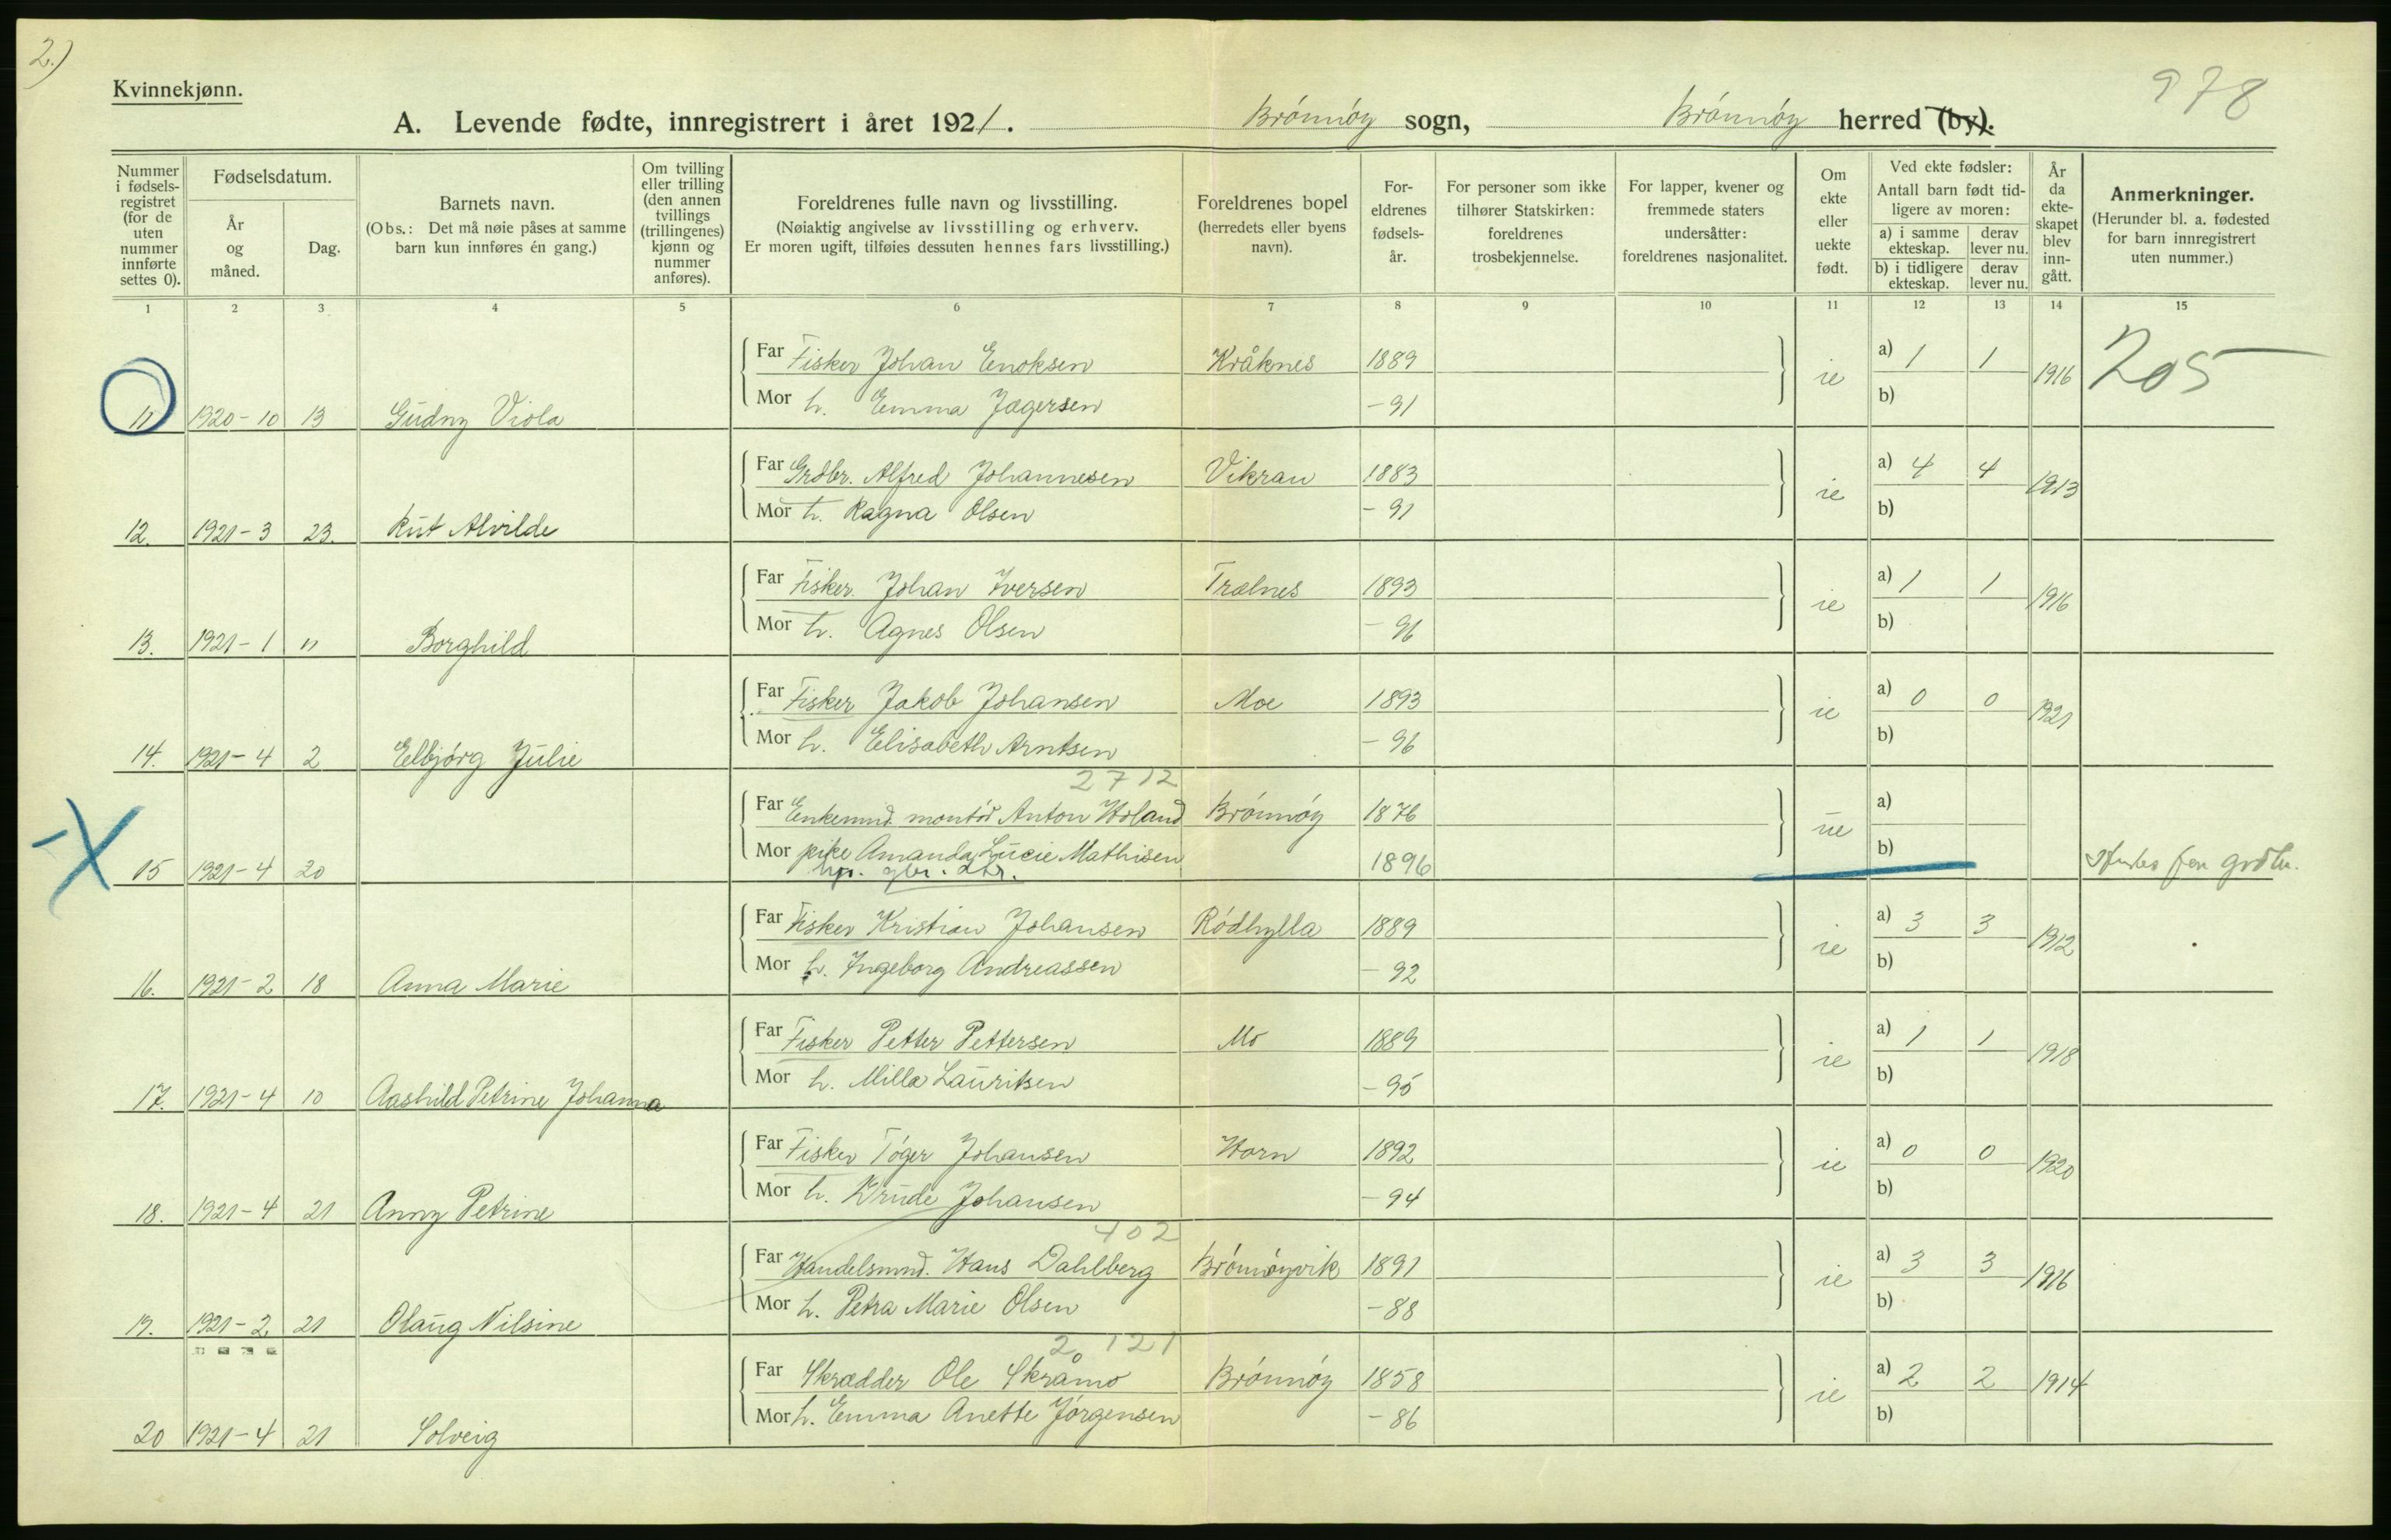 2.)
Kvinnekjønn.
978
A. Levende fødte, innregistrert i året 1921. Brönnöy sogn, Brönnöy herred (by).
Nummer i fødsels-registret (for de uten nummer innførte settes 0).
Fødselsdatum.
År og måned.
Dag.
Barnets navn.
(Obs.: Det må nøie påses at samme barn kun innføres én gang.)
Om tvilling eller trilling (den annen tvillings (trillingenes) kjønn og nummer anføres).
Foreldrenes fulle navn og livsstilling.
(Nøiaktig angivelse av livsstilling og erhverv.
Er moren ugift, tilføies dessuten hennes fars livsstilling.)
Foreldrenes bopel
(herredets eller byens navn).
For-eldrenes fødsels-år.
For personer som ikke tilhører Statskirken: foreldrenes trosbekjennelse.
For lapper, kvener og fremmede staters undersåtter: foreldrenes nasjonalitet.
Om ekte eller uekte født.
Ved ekte fødsler:
Antall barn født tid-ligere av moren:
a) i samme ekteskap. derav lever nu.
b) i tidligere ekteskap. derav lever nu.
År da ekte-skapet blev inn-gått.
Anmerkninger.
(Herunder bl. a. fødested for barn innregistrert uten nummer.)
1 2 3 4 5 6 7 8 9 10 11 12 13 14 15
Far Fisker Johan Enoksen Kråknes 1889 a) 1 1
11 1920-10 13 Gudny Viola ie 1916 205
Mor h. Emma Jægersen -91 b)
Far Grdbr. Alfred Johannesen Vikran 1883 a) 4 4
12. 1921-3 23. Rut Alvilde ie 1913
Mor h. Ragna Olsen -91 b)
Far Fisker Johan Iversen Trælnes 1893 a) 1 1
13. 1921-1 11 Borghild ie 1916
Mor h. Agnes Olsen -96 b)
Far Fisker Jakob Johansen Moe 1893 a) 0 0
14. 1921-4 2 Elbjörg Julie ie 1921
Mor h. Elisabeth Arntsen -96 b)
2712
Far Enkemnd. montör Anton Holand Brönnöy 1876 a)
15 1921-4 20 ue
Mor pike Amanda Lucie Mathisen 1896 b)
gbr. dtr.
Far Fisker Kristian Johansen Rödhylla 1889 a) 3 3
16. 1921-2 18 Anna Marie ie 1912
Mor h. Ingeborg Andreassen -92 b)
Far Fisker Petter Pettersen Mo 1889 a) 1 1
17. 1921-4 10 Aashild Petrine Johanna ie 1918
Mor h. Milla Lauritsen -95 b)
Far Fisker Töger Johansen Horn 1892 a) 0 0
18. 1921-4 21 Anny Petrine ie 1920
Mor h. Drude Johansen -94 b)
402
Far Handelsmnd. Hans Dahlberg Brönnöyvik 1891 a) 3 3
19. 1921-2 21 Olaug Nilsine ie 1916
Mor h. Petra Marie Olsen -88 b)
2 121
Far Skrædder Ole Skråmo Brönnöy 1858 a) 2 2
20 1921-4 21 Solveig ie 1914
Mor h. Emma Anette Jörgensen -86 b)